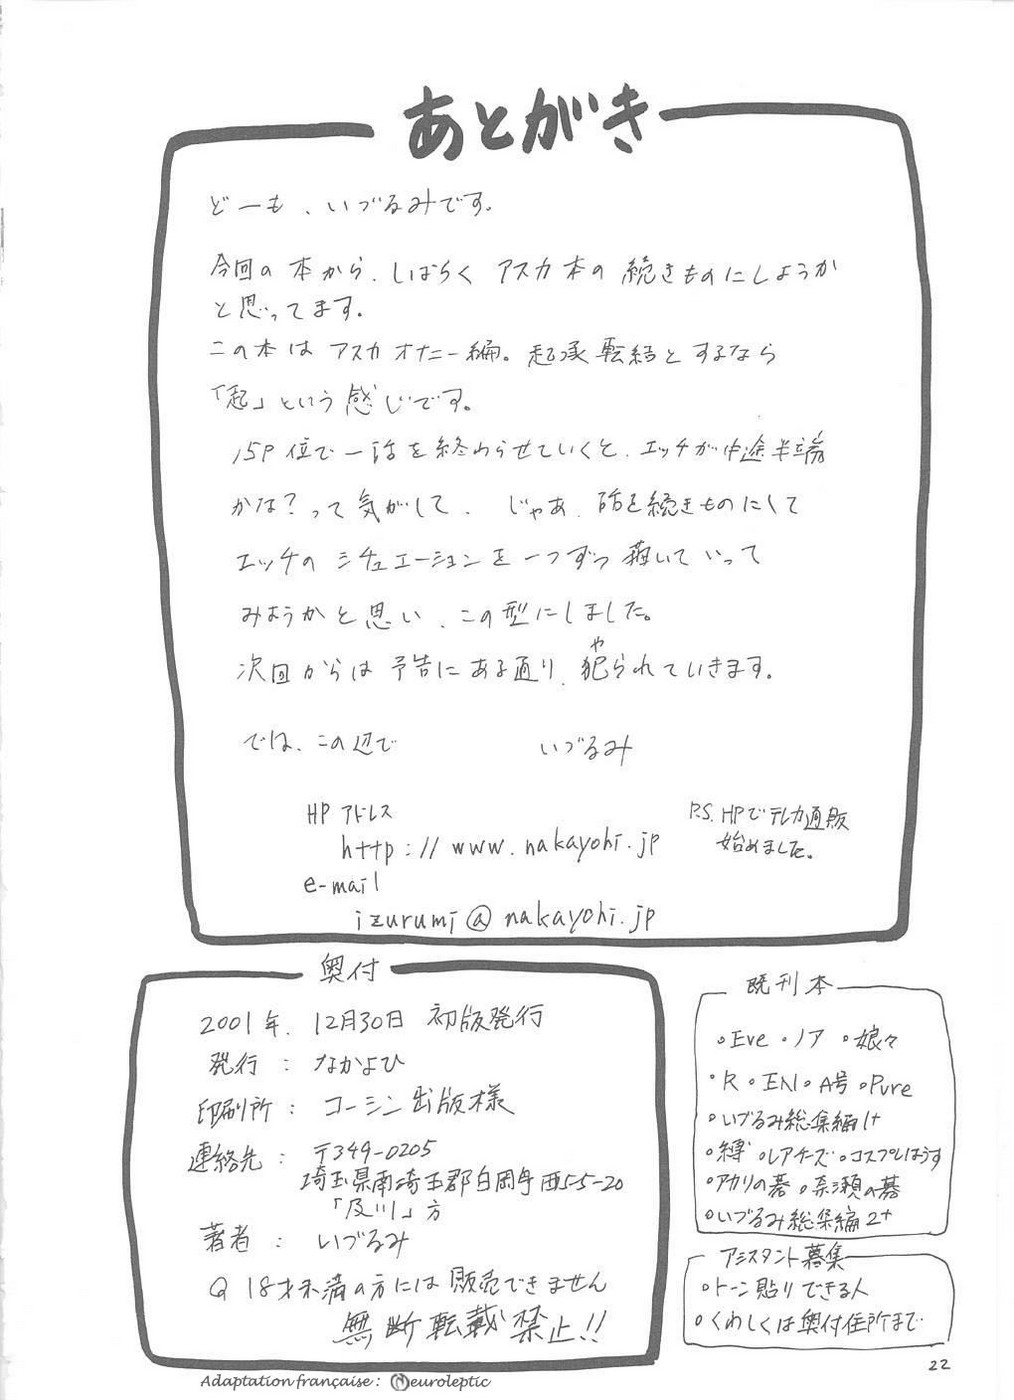 あとがき
どーも、いづるみです。
今回の本から、しばらく アスカ本の 続きものにしようか
と思ってます。
この本は アスカオナニー編。起承転結とするなら
「起」という感じです。
15P位で一話を終わらせていくと、エッチが中途半端
かな？って気がして、じゃあ、話を続きものにして
エッチの シチュエーションを一つずつ描いていって
みようかと思い、この型にしました。
次回からは予告にある通り、犯られていきます。
や
では、この辺で いづるみ
HP アドレス
http://www.nakayohi.jp
e-mail
izurumi@nakayohi.jp
P.S. HPでテレカ通販
始めました。
奥付
2001年、12月30日 初版発行
発行 : なかよひ
印刷所 : コーシン出版様
連絡先 : 〒349-0205
埼玉県南埼玉郡白岡町西5-5-20
「及川」方
著者 : いづるみ
18才未満の方には販売できません
無断転載禁止!!
既刊本
・Eve ・ノア ・娘々
・R ・EN ・A号 ・Pure
・いづるみ総集編1+
・縛 ・レアチーズ ・コスプレはうす
・アカリの碁 ・奈瀬の碁
・いづるみ総集編2+
アシスタント募集
・トーン貼りできる人
・くわしくは奥付住所まで
22
Adaptation française : Neuroleptic